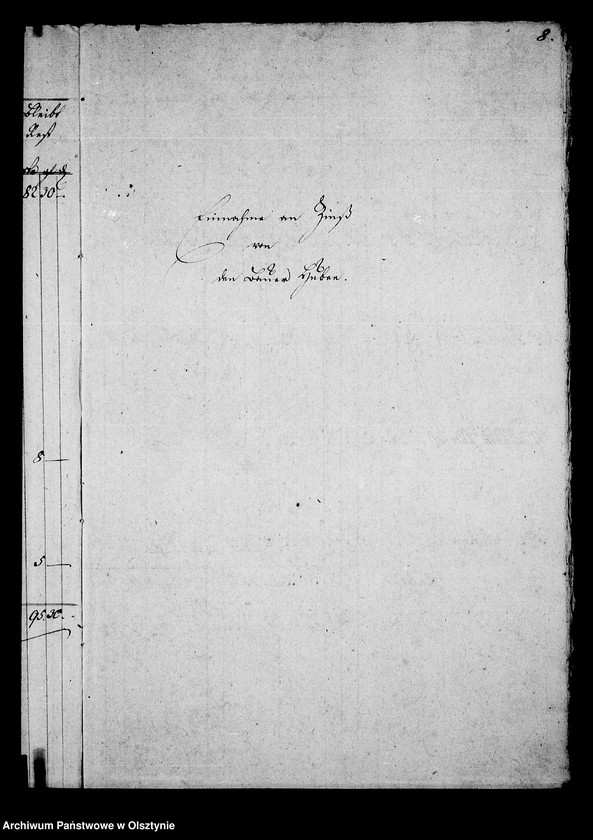 8.
bleibt
Rest
82 30
8 —
5 —
95 30.
Einnahme an Zinß
von
den Bauer Huben.
Archiwum Państwowe w Olsztynie